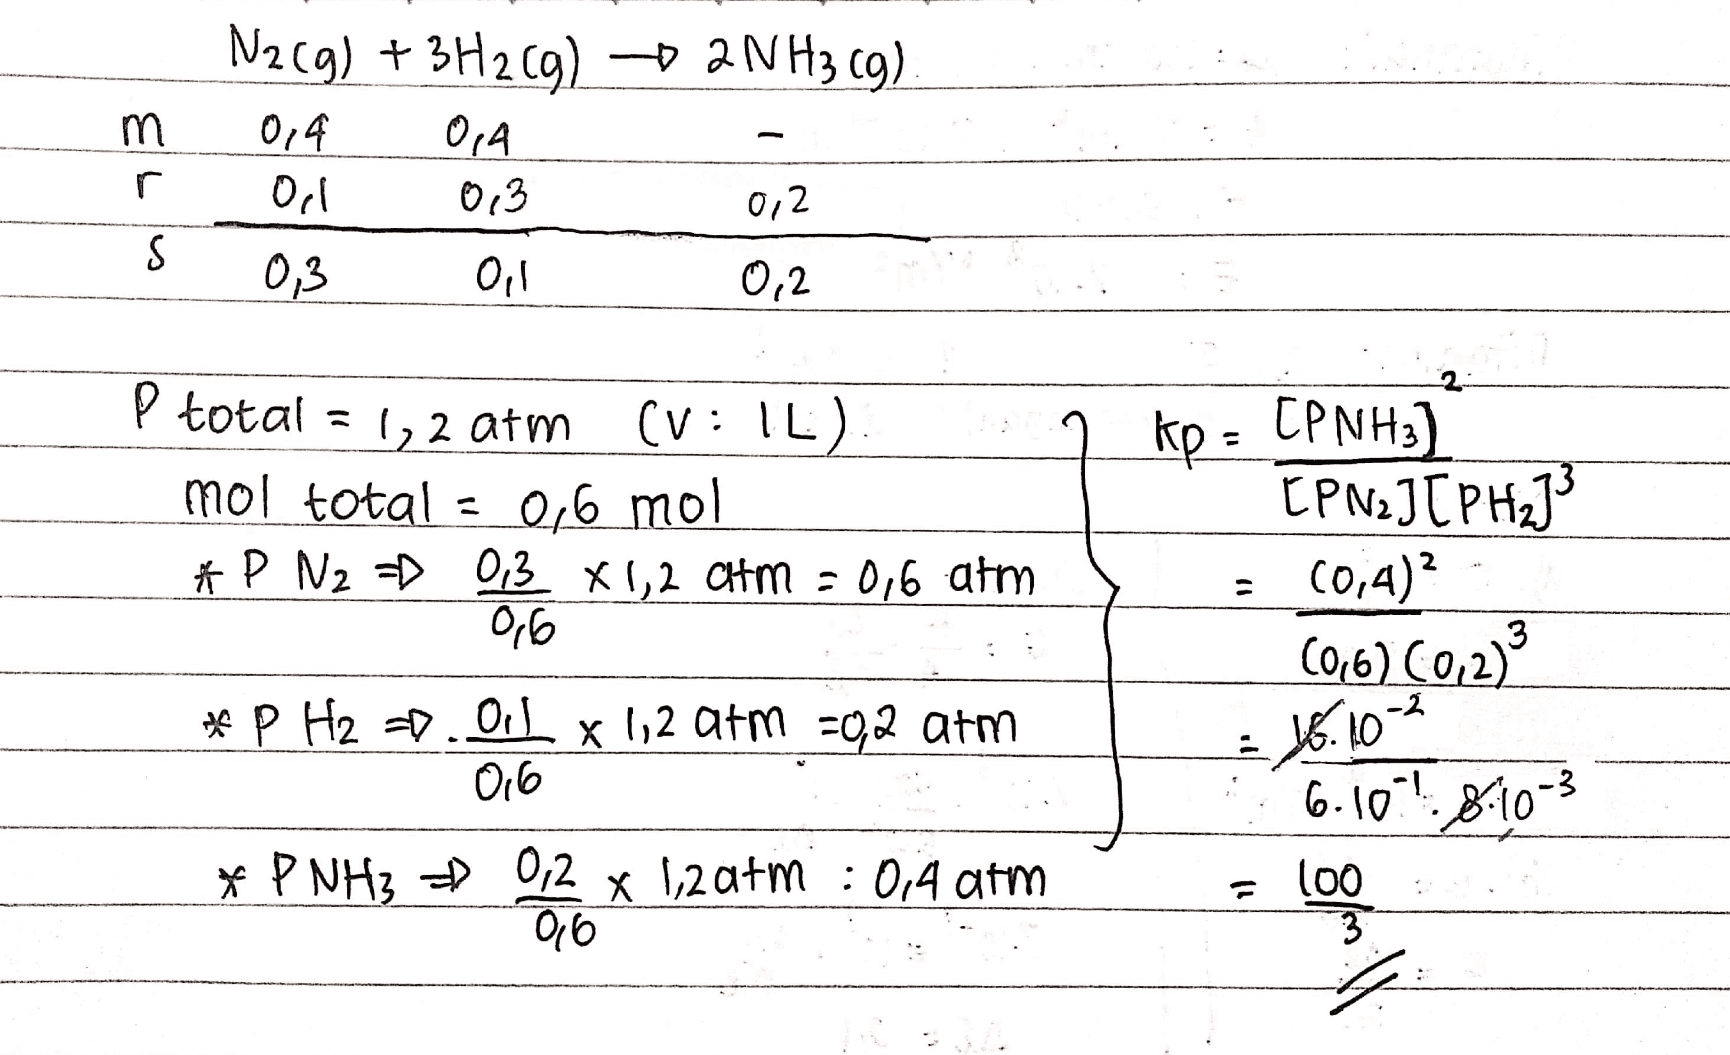 N2(g) + 3H2(g) → 2NH3(g)
m 0,4 0,4 -
r 0,1 0,3 0,2
s 0,3 0,1 0,2
P total = 1,2 atm (V: 1L)
mol total = 0,6 mol
* P N2 ⇒ 0,3/0,6 x 1,2 atm = 0,6 atm
* P H2 ⇒ 0,1/0,6 x 1,2 atm = 0,2 atm
* P NH3 ⇒ 0,2/0,6 x 1,2 atm : 0,4 atm
Kp = [PNH3]²/[PN2][PH2]³
= (0,4)²/(0,6)(0,2)³
= 16.10⁻²/6.10⁻¹. 8.10⁻³
= 100/3